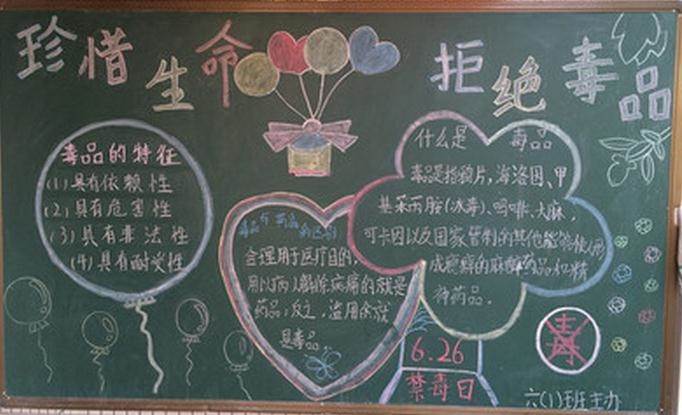 珍惜生命 拒绝毒品
毒品的特征
(1)具有依赖性
(2)具有危害性
(3)具有非法性
(4)具有耐受性
毒品与药品的区别
合理用于医疗目的,
用以病人解除病痛的就是
药品;反之,滥用的就
是毒品。
什么是 毒品
毒品是指鸦片,海洛因、甲
基苯丙胺(冰毒)、吗啡、大麻,
可卡因以及国家管制的其他能够使人形
成瘾癖的麻醉药品和精
神药品。
6.26
禁毒日
毒
六(1)班主办